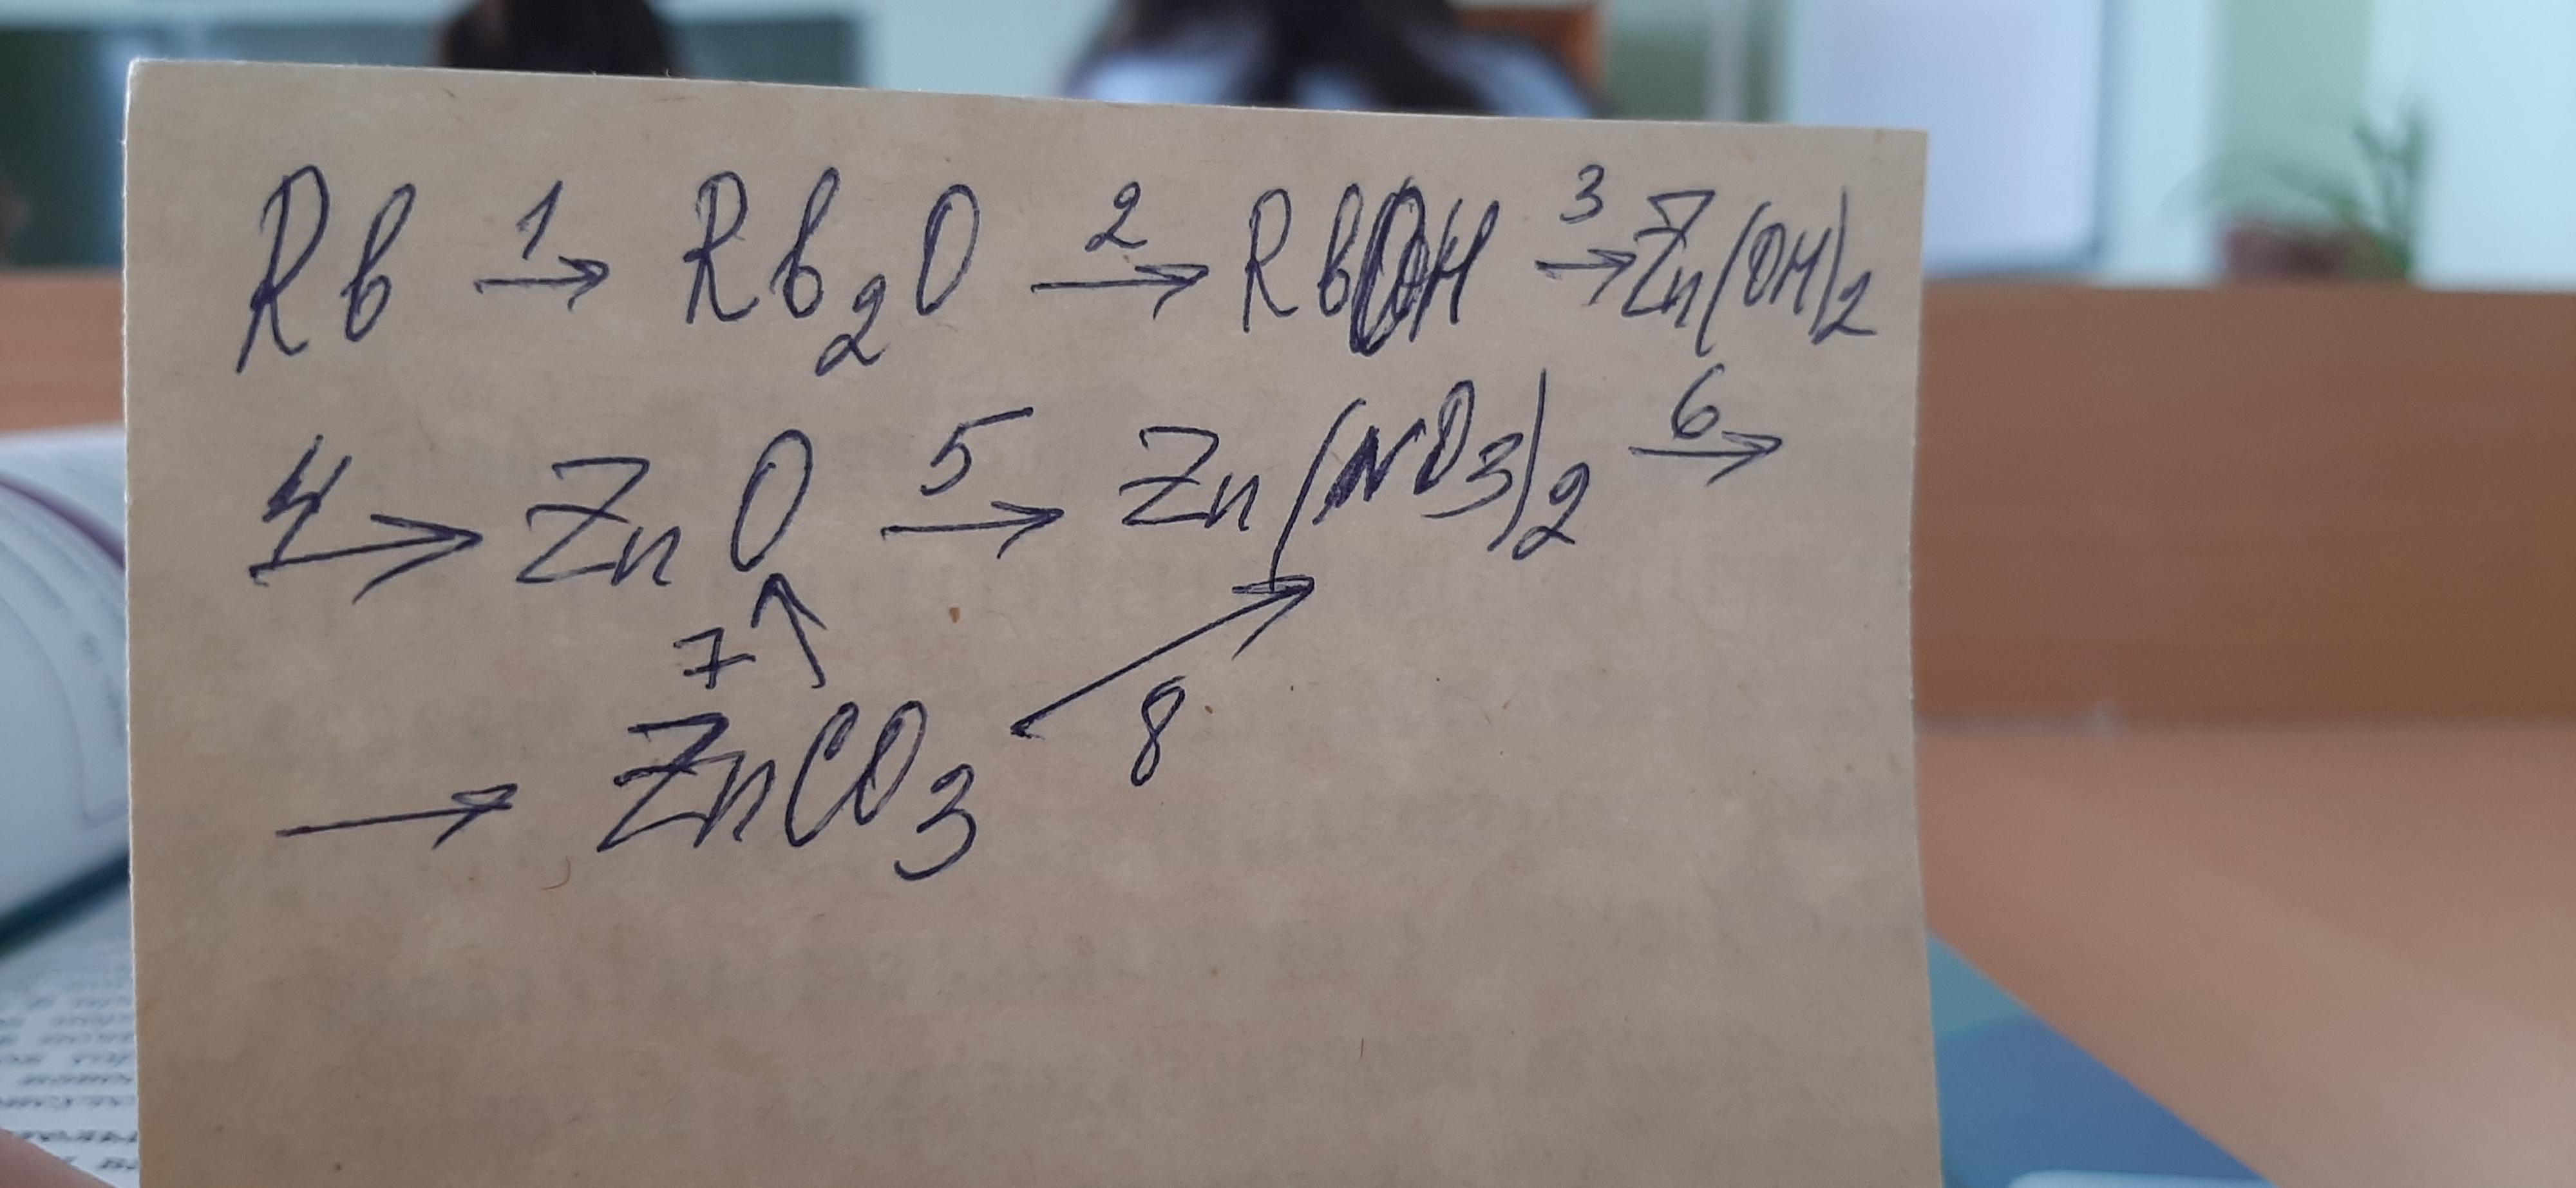 Rb 1→ Rb2O 2→ RbOH 3→ Zn(OH)2
4→ ZnO 5→ Zn(NO3)2 6→
7↑ 8↗
→ ZnCO3